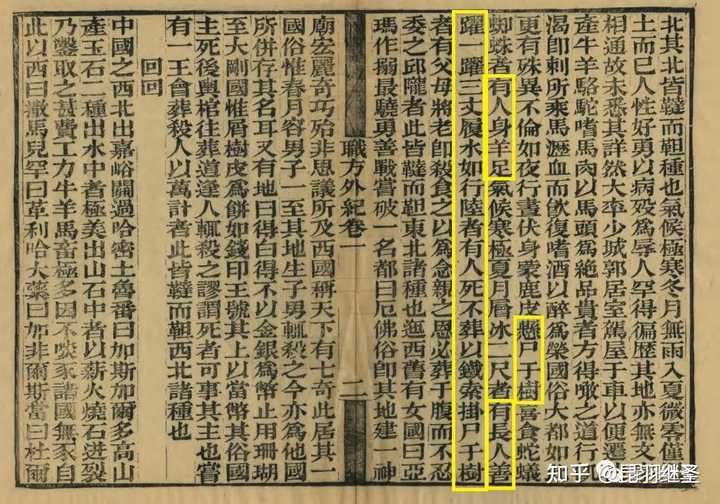 北其北皆韃而靼種也氣候極寒冬月無雨入夏微零僅
土而已人性好勇以病歿爲辱人罕得徧歷其地亦無文
相通故未悉其詳然大率少城郭居室駕屋于車以便遷
產牛羊駱駝嗜馬肉以馬頭爲絶品貴者方得噉之道行
渴卽刺所乘馬瀝血而飮復嗜酒以醉爲榮國俗大都如
更有殊異不倫如夜行晝伏身蒙鹿皮懸尸于樹喜食蛇蟻
蜘蛛者有人身羊足氣候寒極夏月層冰二尺者有長人善
躍一躍三丈履水如行陸者有人死不葬以鐵索掛尸于樹
者有父母將老卽殺食之以爲念親之恩必葬于腹而不忍
委之邱隴者此皆韃而靼東北諸種也迤西舊有女國曰亞
瑪作搦最驍勇善戰嘗破一名都曰厄佛俗卽其地建一神
職方外紀卷一
二
廟宏麗奇巧殆非思議所及西國稱天下有七奇此居其一
國俗惟春月容男子一至其地生子男輒殺之今亦爲他國
所併存其名耳又有地曰得白得不以金銀爲幣止用珊瑚
至大剛國惟屑樹皮爲餅如錢印王號其上以當幣其俗國
主死後輿棺往葬道逢人輒殺之謬謂死者可事其主也嘗
有一王會葬殺人以萬計者此皆韃而靼西北諸種也
回回
中國之西北出嘉峪關過哈密土魯番曰加斯加爾多高山
產玉石二種出水中者極美出山石中者以薪火燒石迸裂
乃鑿取之甚費工力牛羊馬畜極多因不啖豕諸國無豕自
此以西曰撒馬兒罕曰革利哈大藥曰加非爾斯當曰杜爾
知乎 @昆羽继圣